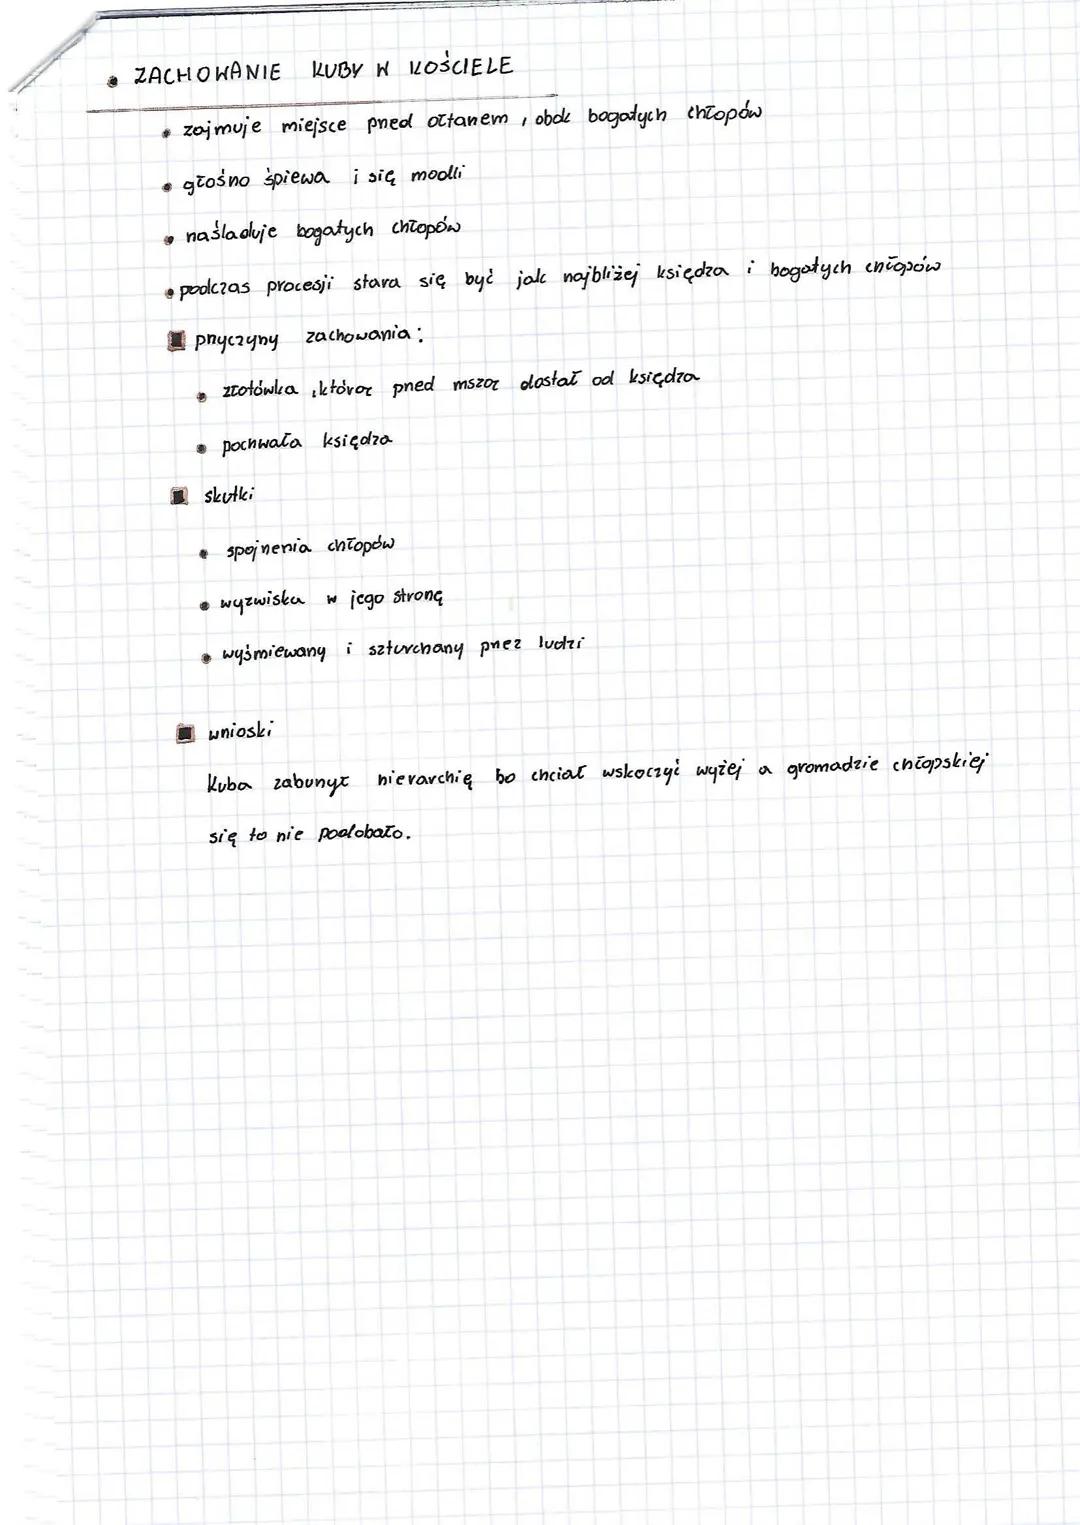 • ZACHOWANIE KUBY W KOŚCIELE
• zajmuje miejsce przed ołtarzem, obok bogatych chłopów
• głośno śpiewa i się modli
• naśladuje bogatych chłopów
• podczas procesji stara się być jak najbliżej księdza i bogatych chłopów
■ przyczyny zachowania:
• złotówka, którą przed mszą dostał od księdza
• pochwała księdza
■ skutki
• spojrzenia chłopów
• wyzwiska w jego stronę
• wyśmiewany i szturchany przez ludzi
■ wnioski
Kuba zaburzył hierarchię bo chciał wskoczyć wyżej a gromadzie chłopskiej
się to nie podobało.